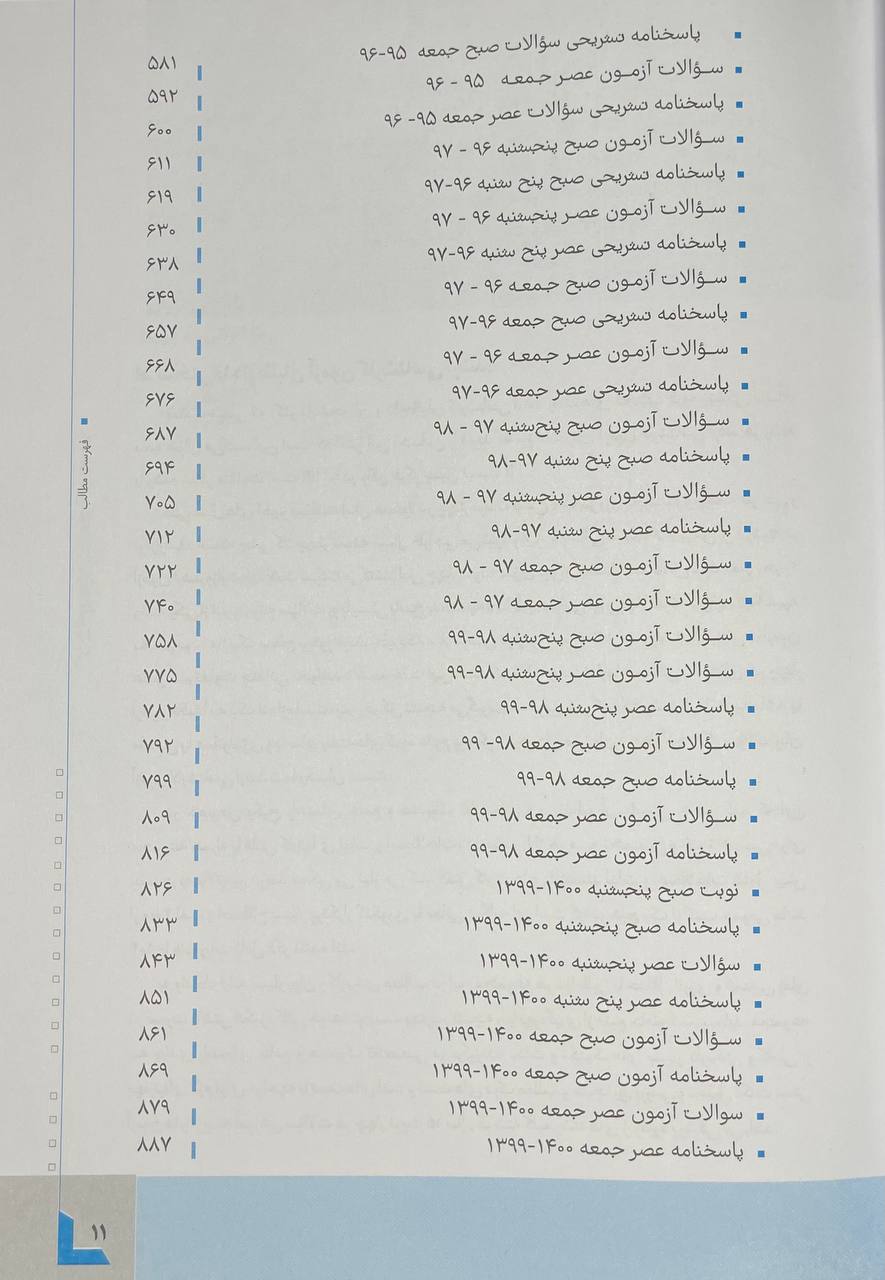 پاسخنامه تشریحی سؤالات صبح جمعه ۹۵-۹۶ ۵۸۱
سؤالات آزمون عصر جمعه ۹۵ - ۹۶ ۵۹۲
پاسخنامه تشریحی سؤالات عصر جمعه ۹۵- ۹۶ ۶۰۰
سؤالات آزمون صبح پنجشنبه ۹۶ - ۹۷ ۶۱۱
پاسخنامه تشریحی صبح پنج شنبه ۹۶-۹۷ ۶۱۹
سؤالات آزمون عصر پنجشنبه ۹۶ - ۹۷ ۶۳۰
پاسخنامه تشریحی عصر پنج شنبه ۹۶-۹۷ ۶۳۸
سؤالات آزمون صبح جمعه ۹۶ - ۹۷ ۶۴۹
پاسخنامه تشریحی صبح جمعه ۹۶-۹۷ ۶۵۷
سؤالات آزمون عصر جمعه ۹۶ - ۹۷ ۶۶۸
پاسخنامه تشریحی عصر جمعه ۹۶-۹۷ ۶۷۶
سؤالات آزمون صبح پنج‌شنبه ۹۷ - ۹۸ ۶۸۷
پاسخنامه صبح پنج شنبه ۹۷-۹۸ ۶۹۴
سؤالات آزمون عصر پنجشنبه ۹۷ - ۹۸ ۷۰۵
پاسخنامه عصر پنج شنبه ۹۷-۹۸ ۷۱۲
سؤالات آزمون صبح جمعه ۹۷ - ۹۸ ۷۲۲
سؤالات آزمون عصر جمعه ۹۷ - ۹۸ ۷۴۰
سؤالات آزمون صبح پنج‌شنبه ۹۸-۹۹ ۷۵۸
سؤالات آزمون عصر پنج‌شنبه ۹۸-۹۹ ۷۷۵
پاسخنامه عصر پنج‌شنبه ۹۸-۹۹ ۷۸۲
سؤالات آزمون صبح جمعه ۹۸- ۹۹ ۷۹۲
پاسخنامه صبح جمعه ۹۸-۹۹ ۷۹۹
سؤالات آزمون عصر جمعه ۹۸-۹۹ ۸۰۹
پاسخنامه آزمون عصر جمعه ۹۸-۹۹ ۸۱۶
نوبت صبح پنجشنبه ۱۴۰۰-۱۳۹۹ ۸۲۶
پاسخنامه صبح پنجشنبه ۱۴۰۰-۱۳۹۹ ۸۳۳
سؤالات عصر پنجشنبه ۱۴۰۰-۱۳۹۹ ۸۴۳
پاسخنامه عصر پنج شنبه ۱۴۰۰-۱۳۹۹ ۸۵۱
سؤالات آزمون صبح جمعه ۱۴۰۰-۱۳۹۹ ۸۶۱
پاسخنامه آزمون صبح جمعه ۱۴۰۰-۱۳۹۹ ۸۶۹
سوالات آزمون عصر جمعه ۱۴۰۰-۱۳۹۹ ۸۷۹
پاسخنامه عصر جمعه ۱۴۰۰-۱۳۹۹ ۸۸۷
فهرست مطالب
۱۱